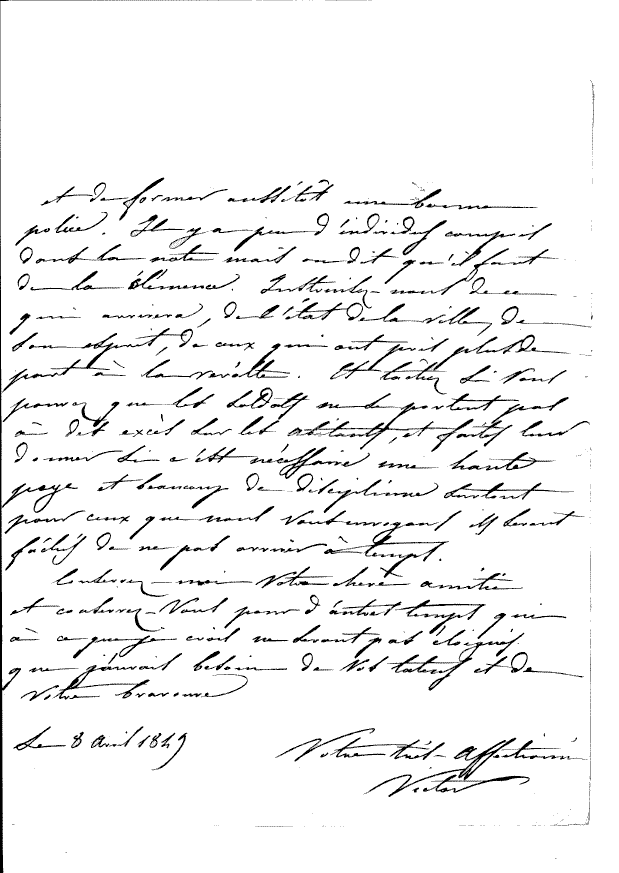 et de former aussitôt une bonne
police. Il y a peu d'individus compris
dans la note mais on dit qu'il faut
de la clémence. Instruisez-nous de ce
qui arrivera, de l'état de la ville, de
son esprit, de ceux qui ont pris plus de
part à la révolte. Et tâchez si vous
pouvez que les soldats ne se portent pas
à des excès sur les abitants, et faites leur
donner si c'est nécessaire une haute
paye et beaucoup de discipline surtout
pour ceux que nous vous envoyons ils seront
fâchés de ne pas arriver à temps.
Conservez-moi votre chère amitié
et conservez-vous pour d'autres temps qui
à ce que je crois ne seront pas éloignés
que j'aurais besoin de vos talents et de
votre bravoure
Le 8 Avril 1849
Votre très-Affectionné
Victor